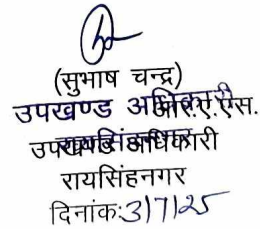 (सुभाष चन्द्र)
उपखण्ड अधिकारी
आर.ए.एस.
रायसिंहनगर
उपखण्ड अधिकारी
रायसिंहनगर
दिनांक:3/7/25